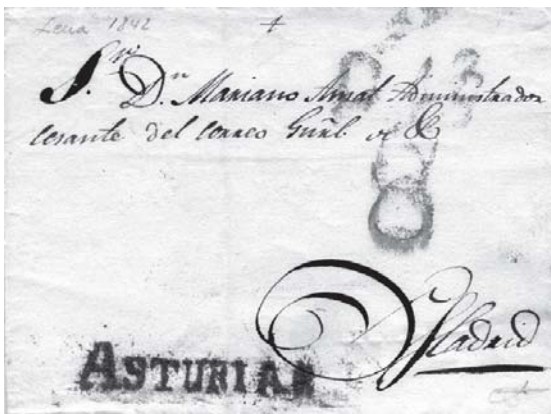 Lena 1842
Sr. Dn. Mariano Amat Administrador
cesante del correo Gral. de &
Madrid
ASTURIAS